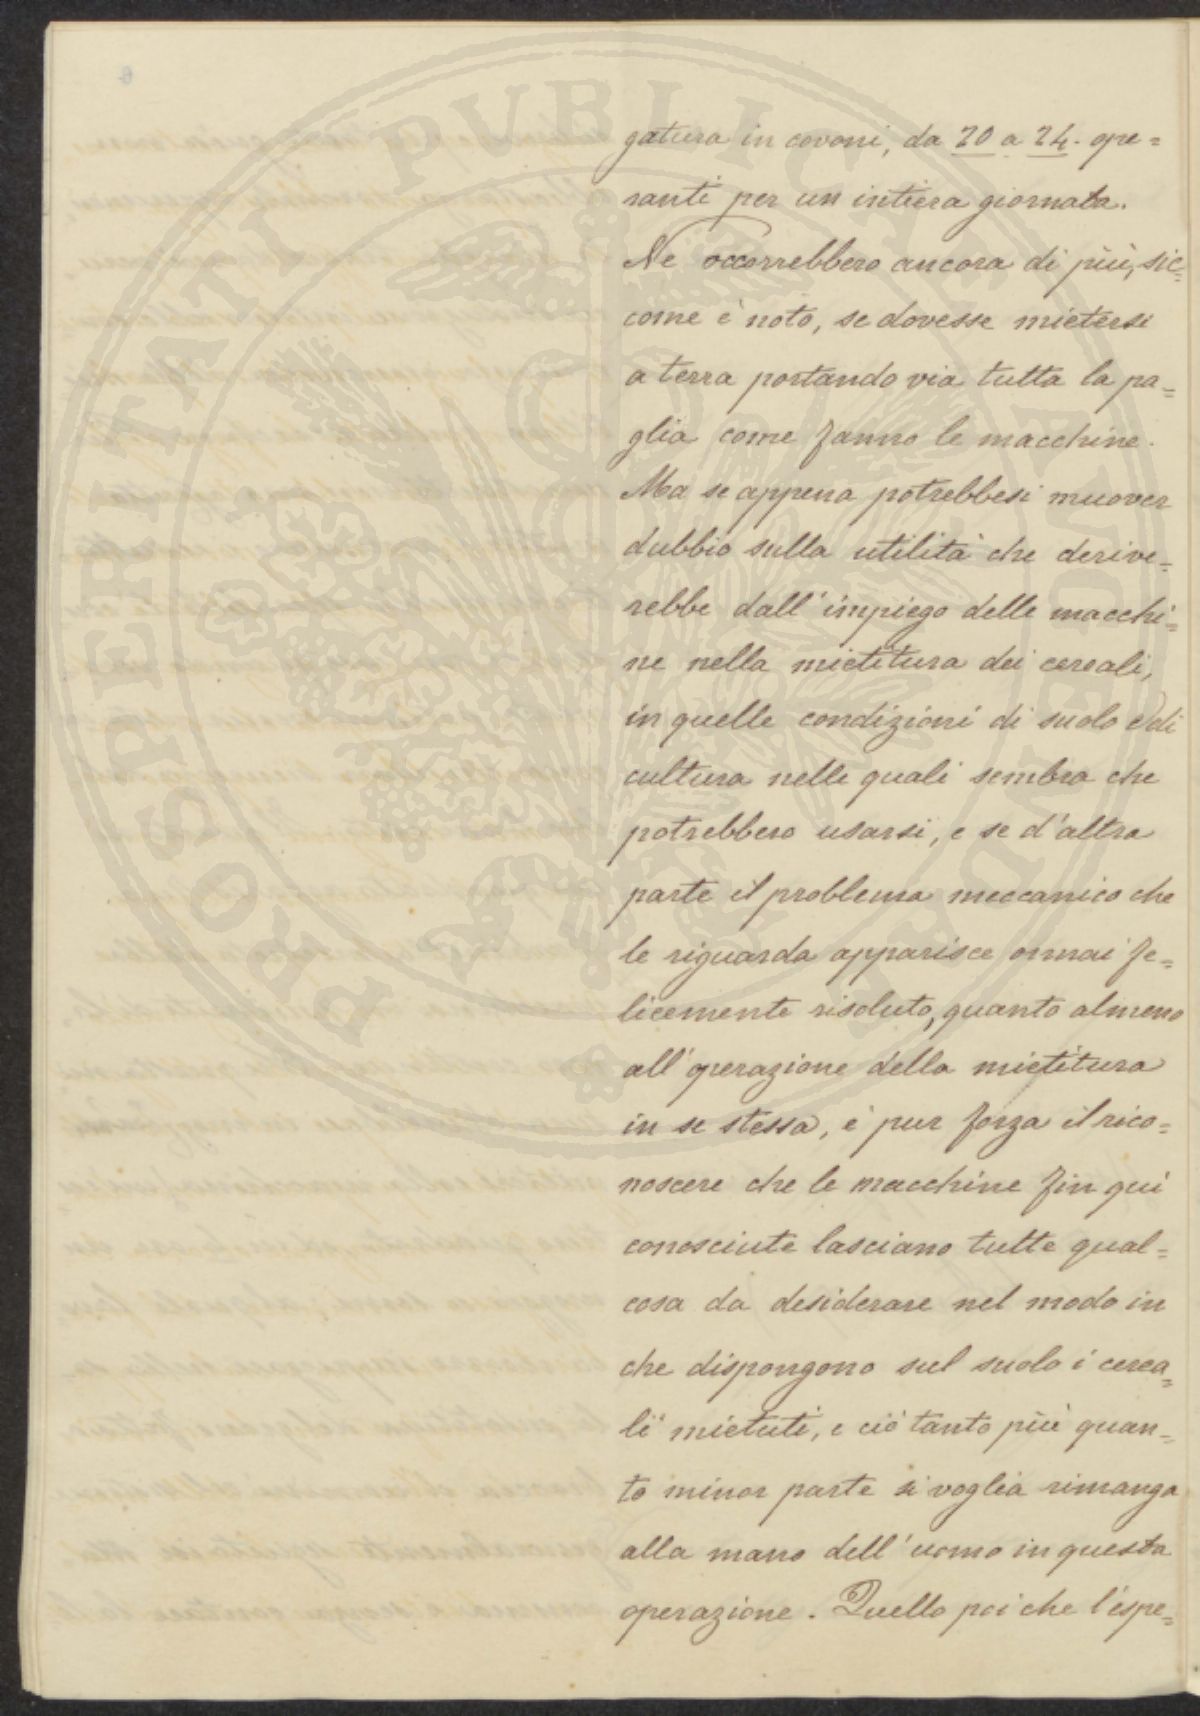 gatura in covoni, da 20 a 24. ope=
ranti per un intiera giornata.
Ne occorrebbero ancora di più, sic=
come è noto, se dovesse mietersi
a terra portando via tutta la pa=
glia come fanno le macchine.
Ma se appena potrebbesi muover
dubbio sulla utilità che derive=
rebbe dall'impiego delle macchi=
ne nella mietitura dei cereali,
in quelle condizioni di suolo e di
cultura nelle quali sembra che
potrebbero usarsi, e se d'altra
parte il problema meccanico che
le riguarda apparisce ormai fe=
licemente risoluto, quanto almeno
all'operazione della mietitura
in se stessa, è pur forza il rico=
noscere che le macchine fin qui
conosciute lasciano tutte qual=
cosa da desiderare nel modo in
che dispongono sul suolo i cerea=
li mietuti, e ciò tanto più quan=
to minor parte si voglia rimanga
alla mano dell'uomo in questa
operazione. Quello poi che l'espe=
PROSPERITATI PUBLICAE AUGENDAE